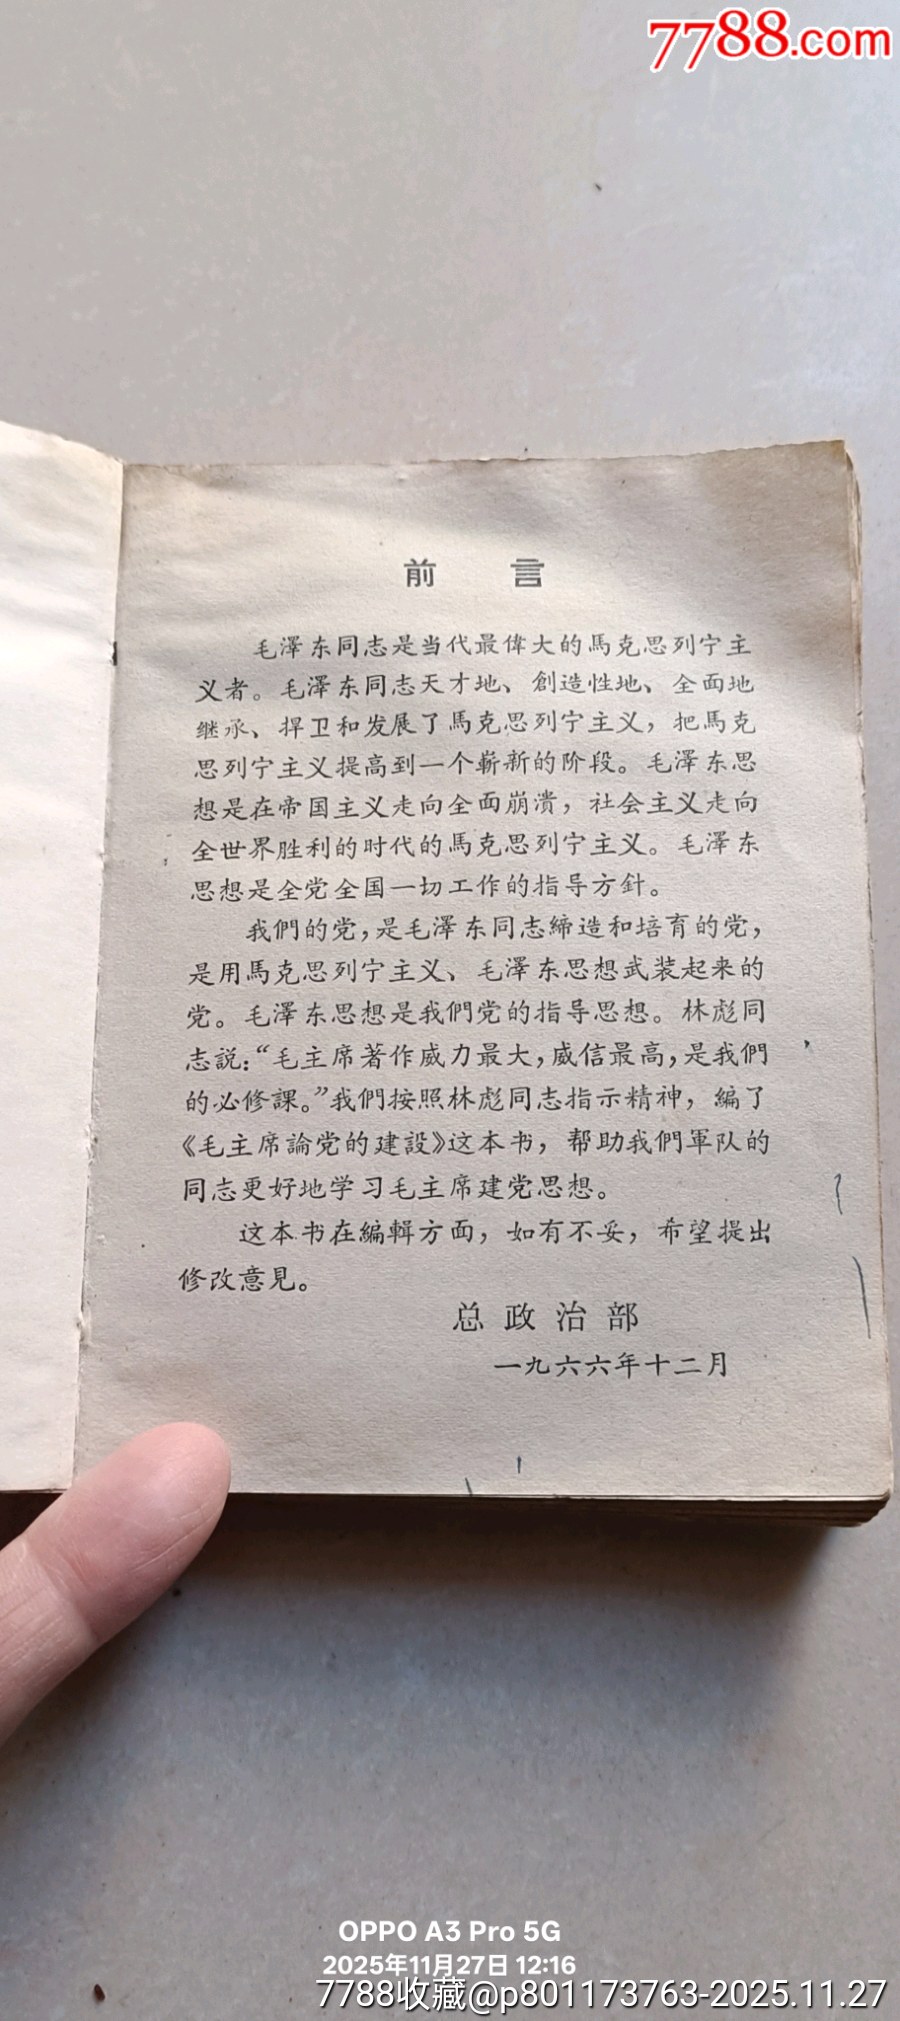 7788.com
前 言
毛澤东同志是当代最偉大的馬克思列宁主
义者。毛澤东同志天才地、創造性地、全面地
继承、捍卫和发展了馬克思列宁主义，把馬克
思列宁主义提高到一个嶄新的阶段。毛澤东思
想是在帝国主义走向全面崩溃，社会主义走向
全世界胜利的时代的馬克思列宁主义。毛澤东
思想是全党全国一切工作的指导方針。
我們的党，是毛澤东同志締造和培育的党，
是用馬克思列宁主义、毛澤东思想武装起来的
党。毛澤东思想是我們党的指导思想。林彪同
志説：“毛主席著作威力最大，威信最高，是我們
的必修課。”我們按照林彪同志指示精神，編了
《毛主席論党的建設》这本书，帮助我們軍队的
同志更好地学习毛主席建党思想。
这本书在編輯方面，如有不妥，希望提出
修改意見。
总政治部
一九六六年十二月
OPPO A3 Pro 5G
2025年11月27日 12:16
7788收藏@p801173763-2025.11.27